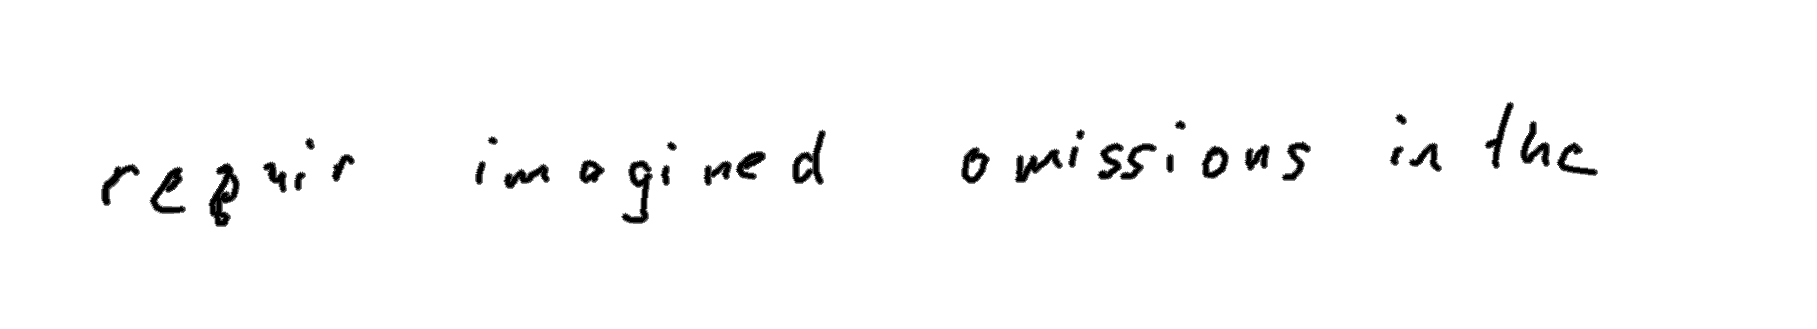 repair imagined omissions in the